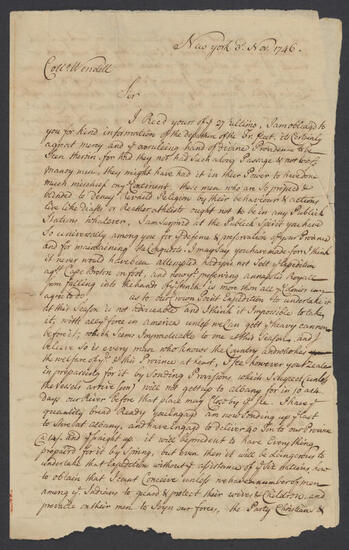 New york 3d. Nov. 1746.
Coll. Wendell
Sir
I Recd yours of ye 27 ultimo, I am obleag'd to
you for kind information of the dispersion of the Fr. fleet. its Certainly
a great mercy and ye overuling hand of divine Providence to be
Seen therein for had they not had Such a long Passage & not lost
many men, they might have had it in their Power to have done
much mischief
blinded to deney reveald Religion by their behaviour & actions
live like diests or Rather atheists ought not to be in any Publick
Stations whatever, I am Surprised at the Publick Spirit you have
So universively among you for ye Defence & preservation of your Province
and for maintaining the Conquests I may Say you have made for I think
it never would have been attempted had you not Sett ye Expedition
agt. Cape Breton on foot, and now by preserving annapolis Royale
from falling into the hands of ye french is more then all ye Colonies can
agree to do, as to our Crown Point Expedition to undertake it
at this Season is not adviseable and I think it Impossible to take
it, with all ye force in america unless we Can gett ye heavy cannon
before it, which seems Impracticable to me at this Season, and I
believe So is every man who knows the Country and wishes
the welfare of ye & this Province at heart, I See however you
in preparations for it by Sending Provisions, which I Suspect (unless
the Vessels arrive Soon) will not gett up to albany for in 10 or 12
days our River before that place may Close by ye Ice. I have ye
quantity bread Ready you engag'd am now Sending up ye last
to Sloop at albany, and have Engag'd to deliver 40 Ton to our Province
@ 14/. and ye freight up it will be prudent to have Every thing
prepared for it by Spring, but even then it will be dangerous to
undertake that Expedition without ye assistance of ye
to obtain that I cant Conceive unless we have a number of men
among ye Indians to guard & protect their wives & Children, and
prevaile on their men to Joyn our forces, the Party Christians &